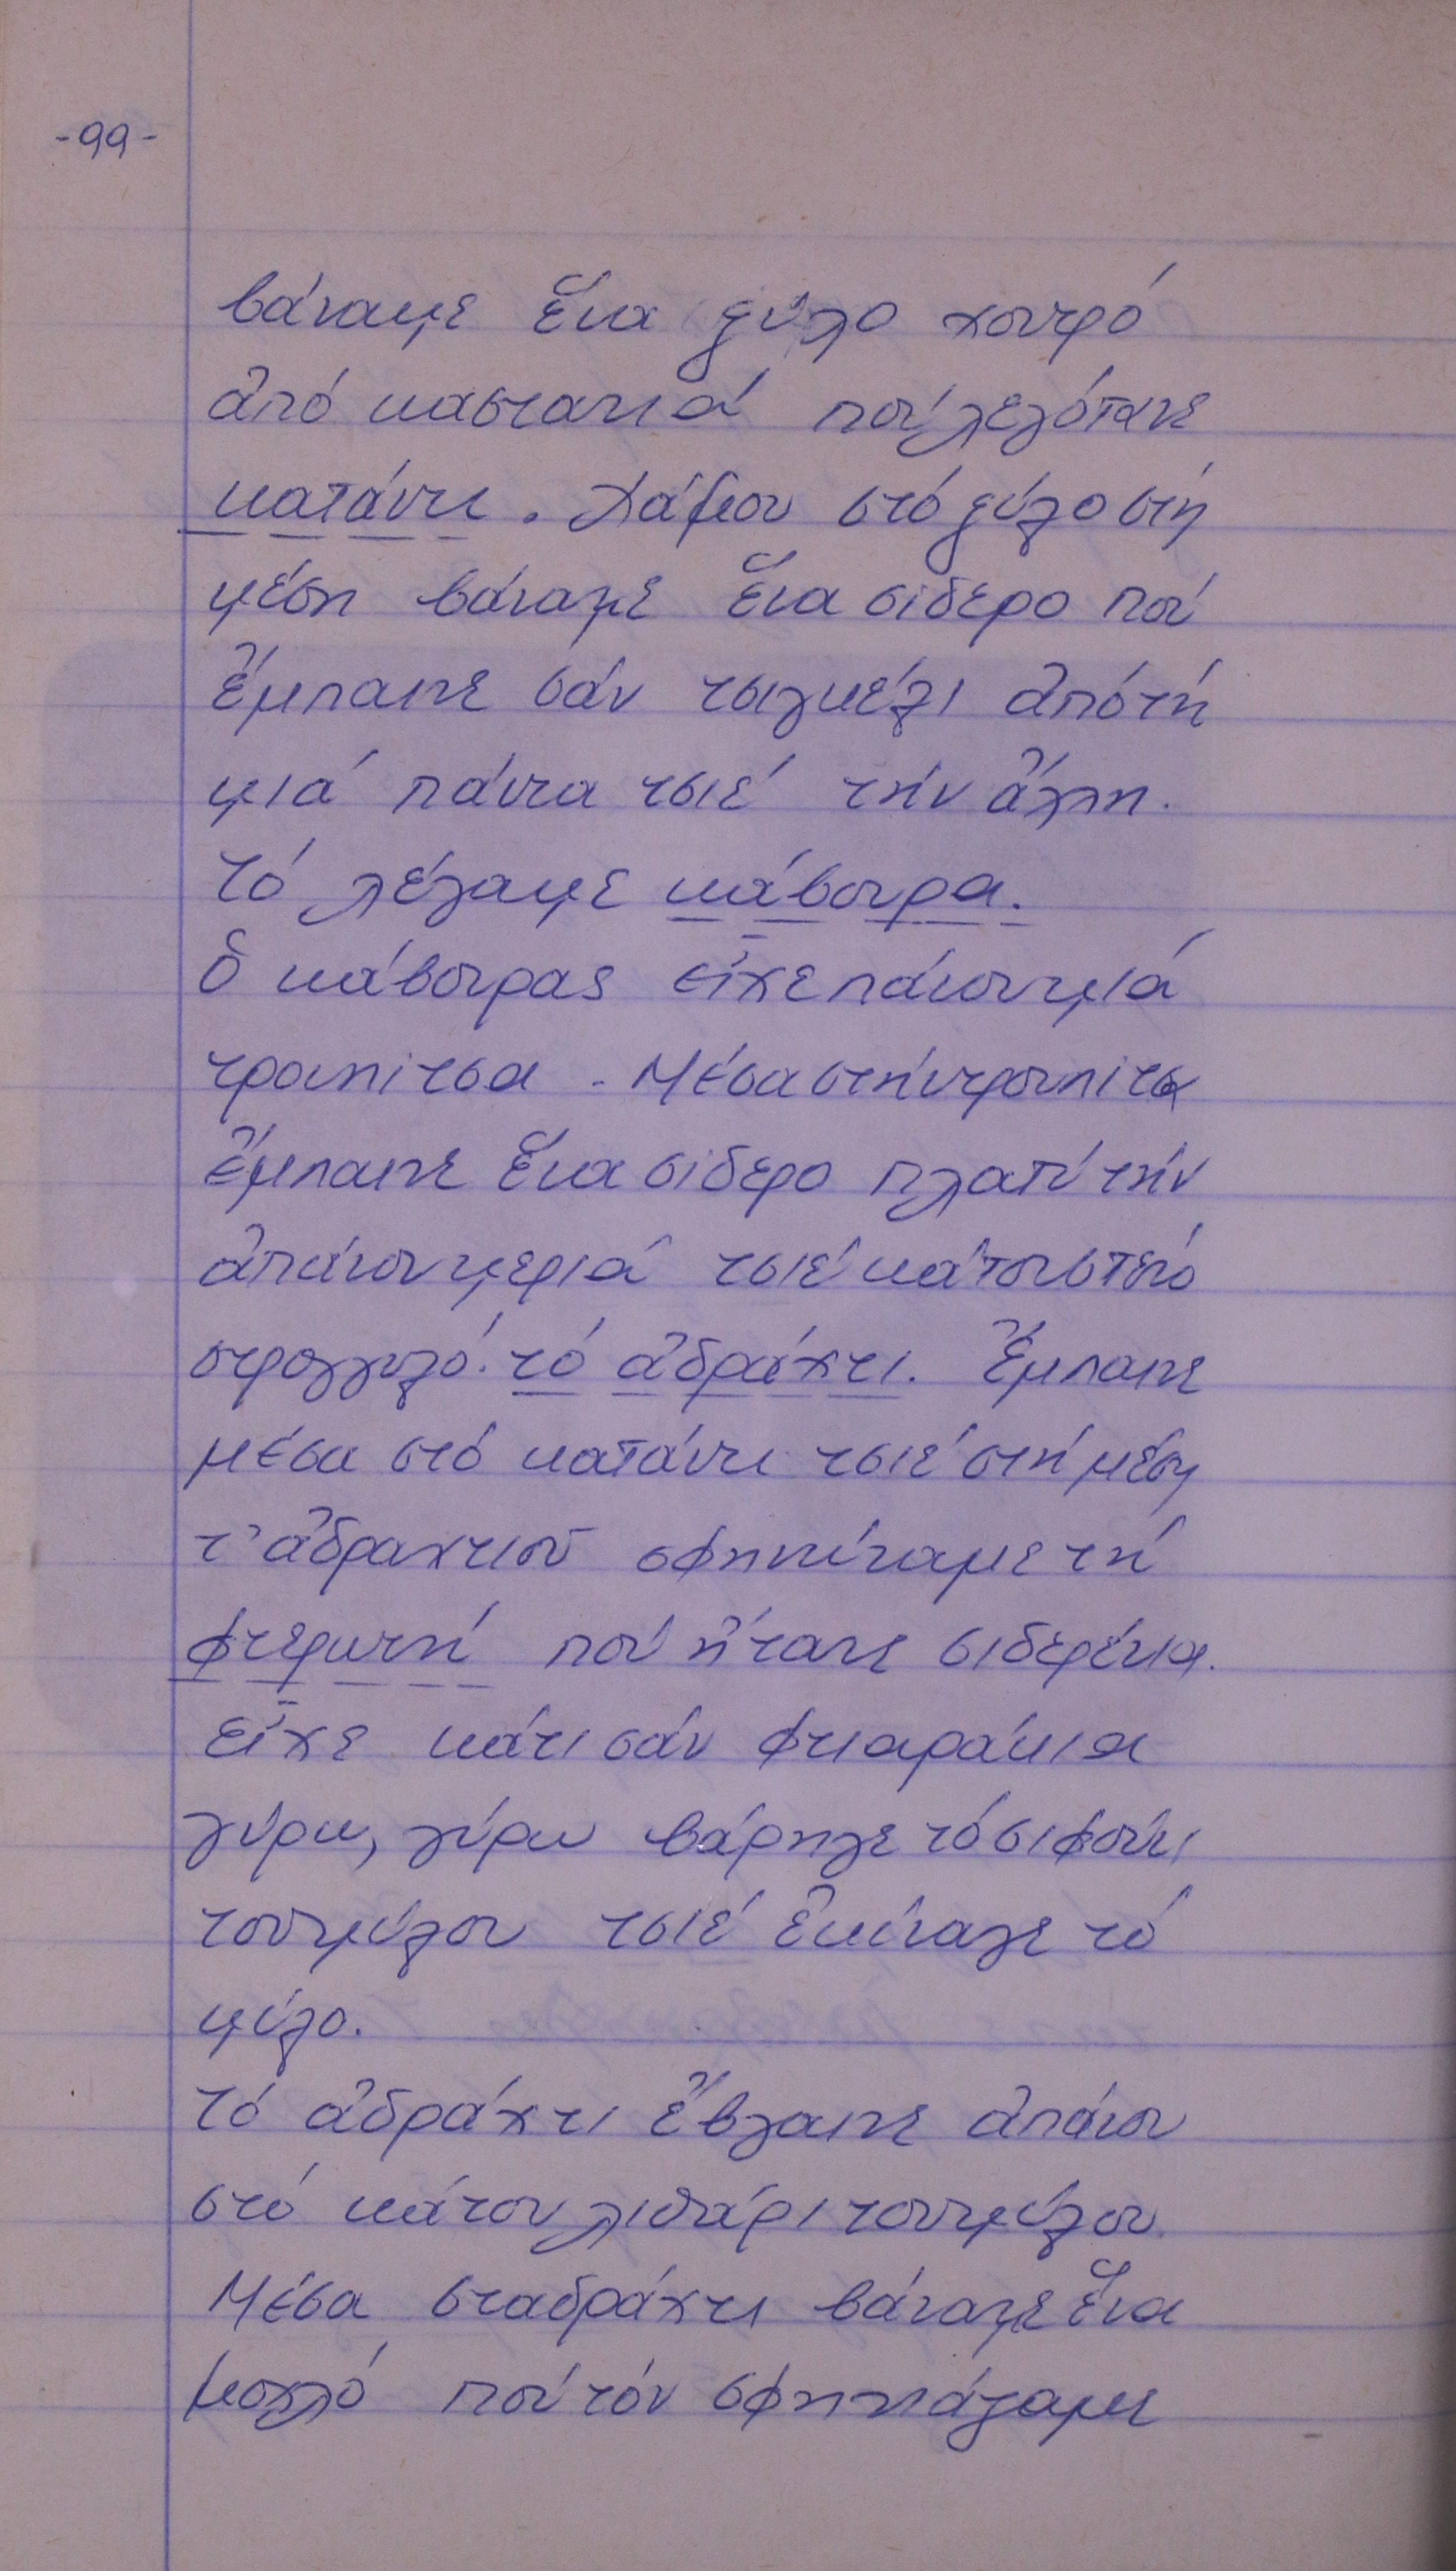 -99-
βάναμε ἕνα ξύλο χοντρό
ἀπό καστανιά πού λεγότανε
κατάντι. Χάμου στό ξύλο στή
μέση βάναμε ἕνα σίδερο πού
ἔμπαινε σάν τσιγκέλι ἀπό τή
μιά πάντα τσιέ τήν ἄλλη.
τό λέγαμε κάβουρα.
ὁ κάβουρας εἶχε πάνου μιά
τρουπίτσα. Μέσα στήν τρουπίτσα
ἔμπαινε ἕνα σίδερο πλατύ τήν
ἀπάνου μεριά τσιέ κάτου στενό
στρογγυλό. τό ἀδράχτι. Ἔμπαινε
μέσα στό κατάντι τσιέ στή μέση
τ' ἀδραχτιοῦ σφηνώναμε τή
φτερωτή πού ἤτανε σιδερένια.
εἶχε κάτι σάν φτιαράκια
γύρω, γύρω βάρηγε τό σιφούνι
τουμύλου τσιέ ἐκίναγε τό
μύλο.
τό ἀδράχτι ἔβγαινε ἀπάνου
στό κάτου λιθάρι τουμύλου.
Μέσα σταδράχτι βάναμε ἕνα
μοχλό πού τόν σφηνιάζαμε